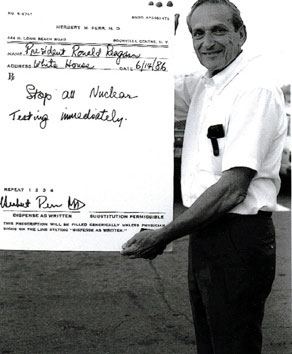 HERBERT M. PERR, M. D.
LONG BEACH ROAD
ROCKVILLE CENTRE, N. Y.
NAME President Ronald Reagan
ADDRESS White House DATE 6/14/86
Rx
Stop all Nuclear
Testing immediately.
REPEAT 1 2 3 4
Herbert Perr MD
DISPENSE AS WRITTEN SUBSTITUTION PERMISSIBLE
THIS PRESCRIPTION WILL BE FILLED GENERICALLY UNLESS PHYSICIAN
SIGNS ON THE LINE STATING "DISPENSE AS WRITTEN."